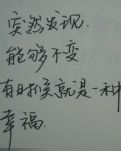 突然发现.
能够不变
有时候就是一种
幸福.